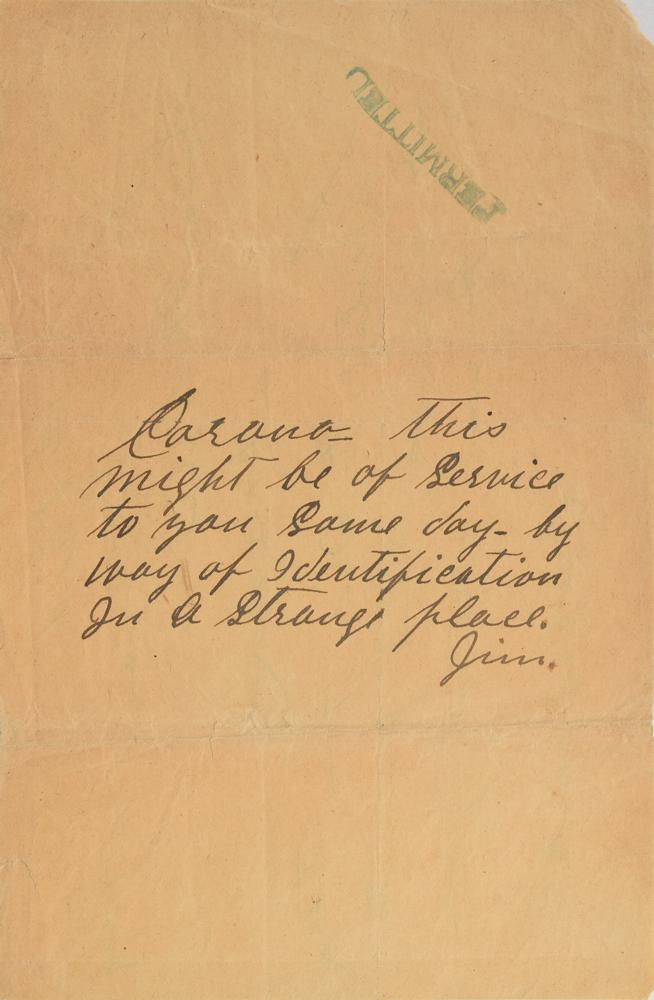 PERMITTED
Corano- this
might be of Service
to you Some day- by
way of Identification
In a Strange place.
Jim.